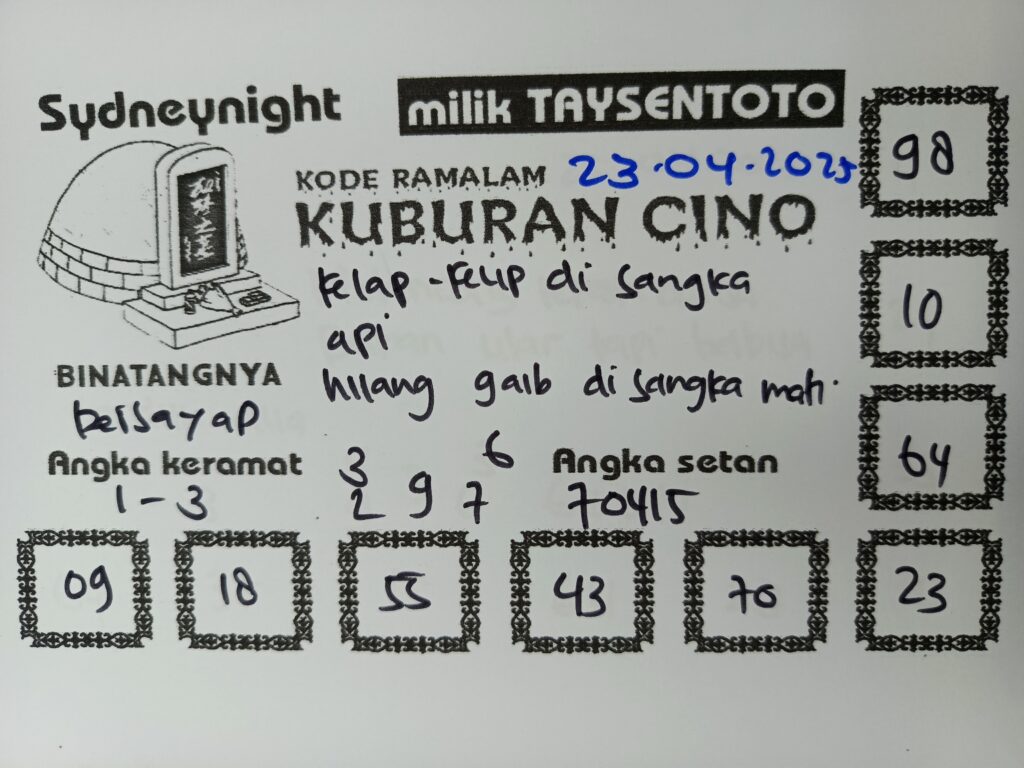 Sydneynight
milik TAYSENTOTO
KODE RAMALAM 23.04.2025
KUBURAN CINO
Kelap-Kelip di sangka
api
hilang gaib di sangka mati.
BINATANGNYA
bersayap
Angka keramat
1-3
3 6
2 9 7
Angka setan
70415
98
10
64
09 18 55 43 70 23